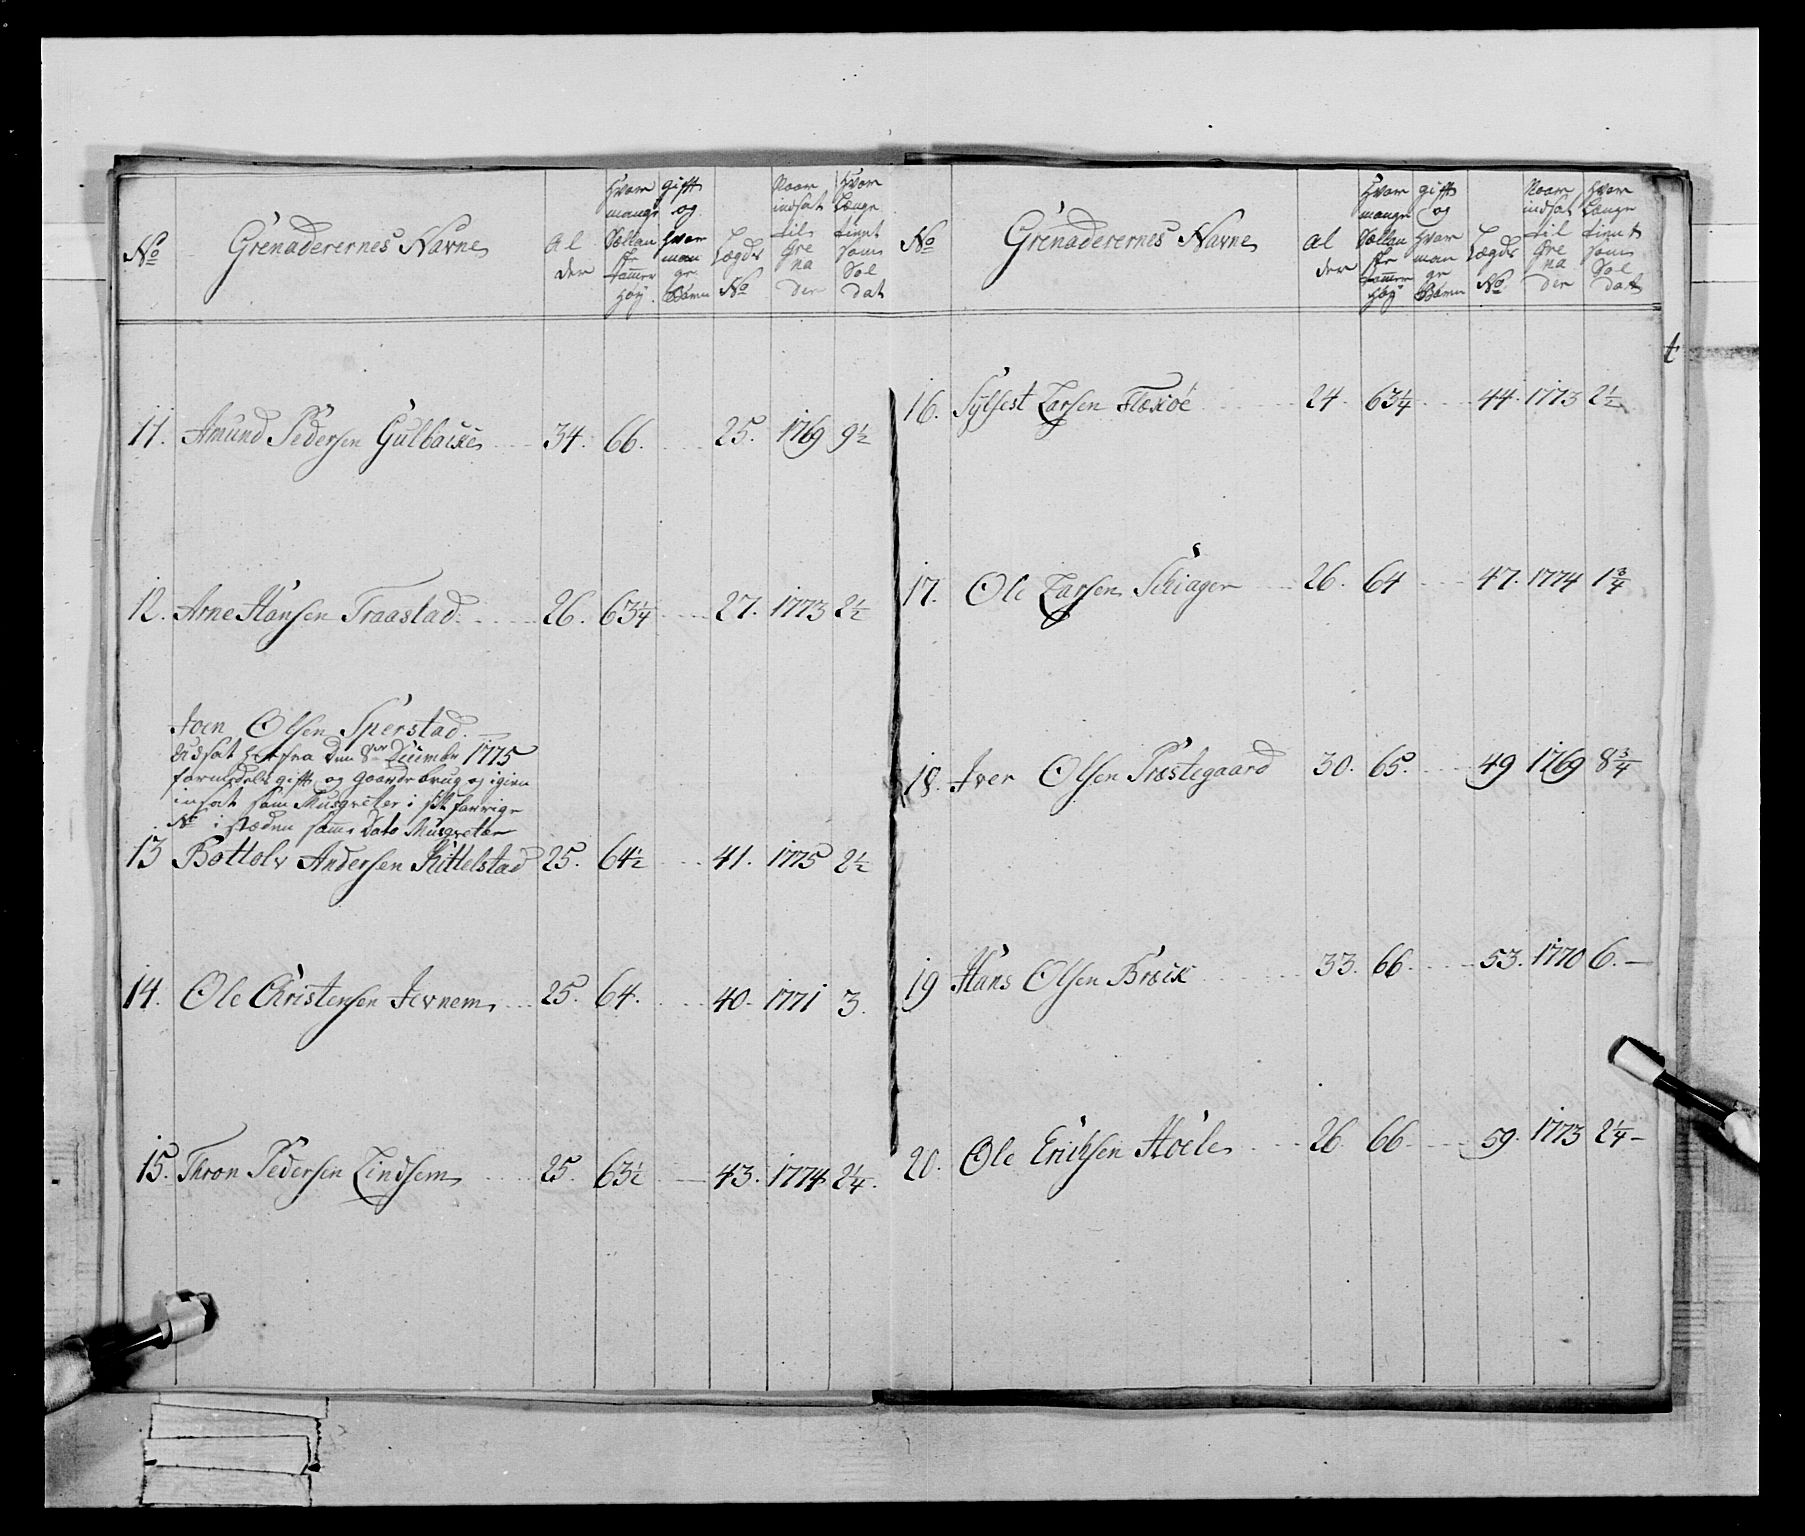 No Grenaderernes Navne Al der Hvor mange Sællan ske Tommer Høy gift og hvor man ge Børn Lægds No Naar indsat til Gre na der Hvor Længe tient som Sol dat
11. Amund Pedersen Gulbache 34. 66. 25. 1769 9½
12. Arne Hansen Traastad 26. 63¼ 27. 1773 2½
Joen Olsen Sperstad
Udsat herfra den 8de December 1775
formedelst gift og Gaardebrug og igien
insat som Musqveter i sit forrige
No i stæden samme Dato Musqveter
13 Bottolv Andersen Kittelstad 25. 64½ 41. 1775 2½
14. Ole Christensen Jevnem 25. 64. 40. 1771 3.
15. Thron Pedersen Lindsem 25. 63½ 43. 1774 2¼.
No Grenaderernes Navne Al der Hvor mange Sællan ske Tommer Høy gift og Hvor man ge Børn Lægds No Naar indsat til Gre na der Hvor Længe tient som Sol dat
16. Sylfest Larsen Flækøe 24. 63¼ 44. 1773 2½
17. Ole Larsen Schiager 26. 64 47. 1774 1¾
18. Iver Olsen Præstegaard 30. 65. 49 1769 8¾
19 Hans Olsen Bræck 33. 66. 53. 1770 6.
20. Ole Erichsen Hoele 26. 66 59. 1773 2¼